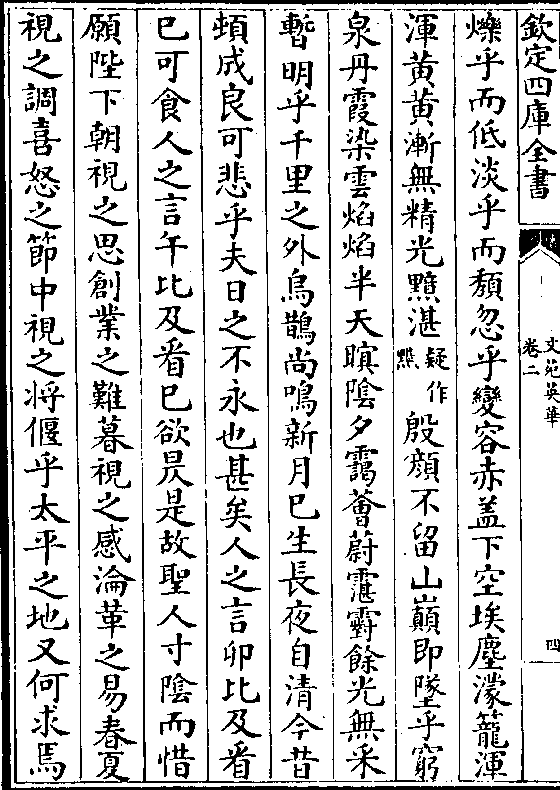 欽定四庫全書
文苑英華
卷二
四
爍乎而低淡乎而頽忽乎變容赤盖下空埃塵濛籠渾
渾黄黄漸無精光黮湛疑作黮殷顔不留山巔即墜乎窮
泉丹霞染雲焰焰半天暝陰夕靄薈蔚霮䨴餘光無采
暫明乎千里之外烏鵲尚鳴新月已生長夜自清今昔
頓成良可悲乎夫日之不永也甚矣人之言卯比及看
已可食人之言午比及看已欲昃是故聖人寸陰而惜
願陛下朝視之思創業之難暮視之感淪革之易春夏
視之調喜怒之節中視之将偃乎太平之地又何求焉